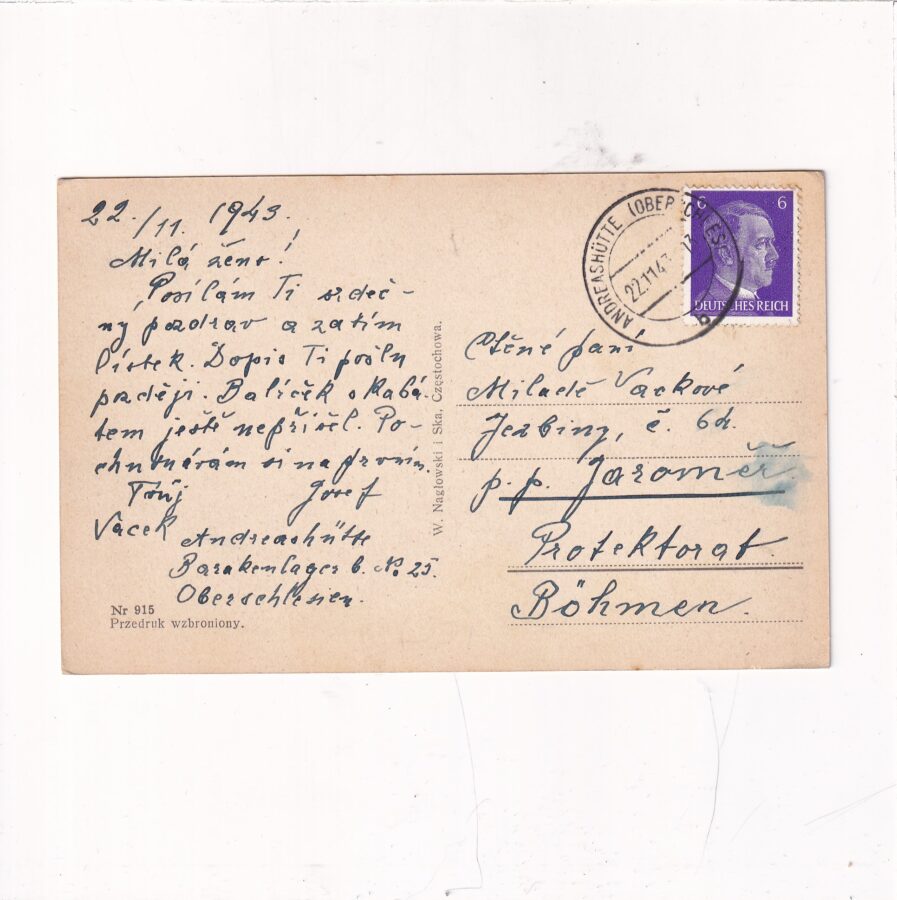 22./11. 1943.
Milá ženo!
Posílám Ti srdeč-
ný pozdrav a zatím
lístek. Dopis Ti pošlu
později. Balíček s Kabá-
tem ještě nepřišel. Po-
si na
Tvůj Josef
Vacek
Andreashütte
Barakenlager b. No 25.
Oberschlesien.
Nr 915
Przedruk wzbroniony.
W. Nagłowski i Ska, Częstochowa.
ANDREASHÜTTE (OBERSCHLESIEN)
22.11.43
b
6 6
DEUTSCHES REICH
Ctěné paní
Miladě Vackové
Jezbiny, č. 64.
p. p. Jaroměř
Protektorat.
Böhmen.